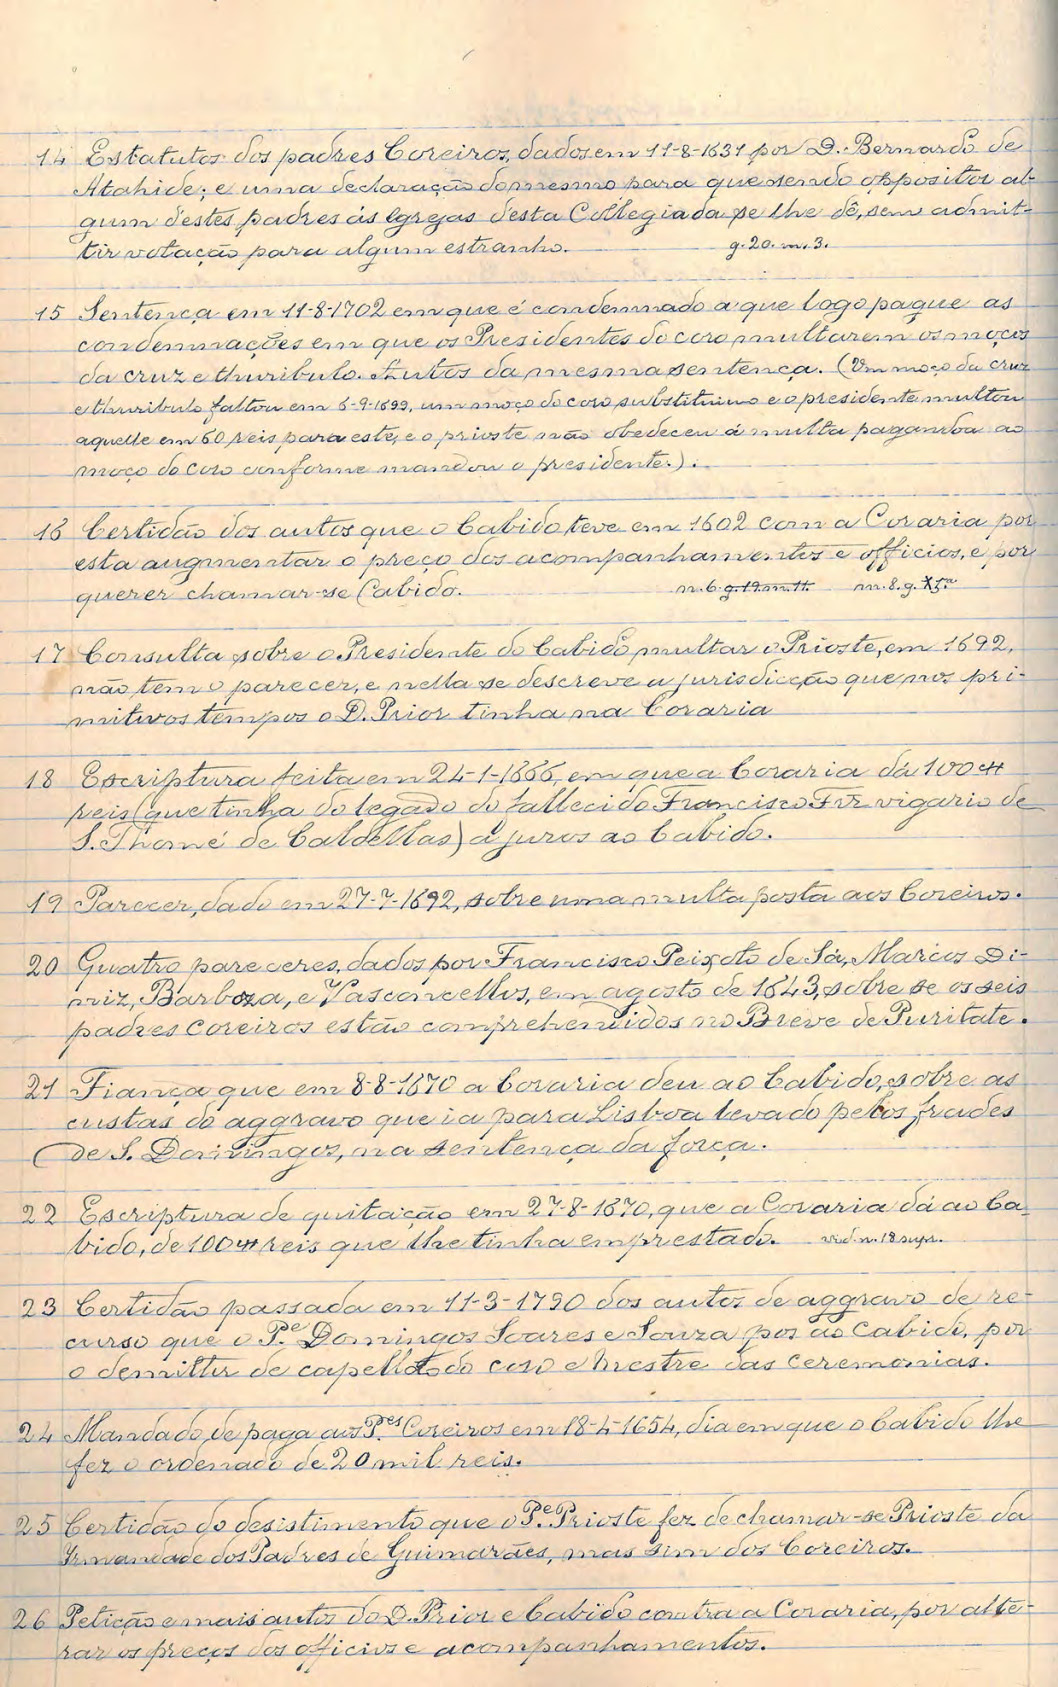 14 Estatutos dos padres Coreiros, dados em 11-8-1631 por D. Bernardo de
Atahide; e uma declaração do mesmo para que sendo oppositor al-
gum destes padres ás Igrejas desta Collegiada se lhe dê, sem admit-
tir votação para algum estranho. g. 20. m. 3.
15 Sentença em 11-8-1702 em que é condemnado a que logo pague as
condemnações em que os Presidentes do coro multarem os moços
da cruz e thuribulo. Autos da mesma sentença. (Um moço da cruz
e thuribulo faltou em 6-9-1699, um moço do coro substituiu-o e o presidente multou
aquelle em 60 reis para este, e o prioste não obedeceu á multa pagando-a ao
moço do coro conforme mandou o presidente.).
16 Certidão dos autos que o Cabido teve em 1602 com a Coraria por
esta augmentar o preço dos acompanhamentos e officios, e por
querer chamar-se Cabido. m. 6. g. 19. m. 11. m. 8. g.
17 Consulta sobre o Presidente do Cabido multar o Prioste, em 1692,
não tem o parecer, e nella se descreve a jurisdicção que nos pri-
mitivos tempos o D. Prior tinha na Coraria
18 Escriptura feita em 24-1-1666, em que a Coraria dá 100$
reis (que tinha do legado do fallecido Francisco Frz vigario de
S. Thomé de Caldellas) a juros ao Cabido.
19 Parecer, dado em 27-7-1692, sobre uma multa posta aos Coreiros.
20 Quatro pareceres, dados por Francisco Peixoto de Sá, Marcos Di-
niz, Barboza, e Vasconcellos, em agosto de 1643, sobre se os seis
padres coreiros estão comprehendidos no Breve de Puritate.
21 Fiança que em 8-8-1670 a Coraria deu ao Cabido, sobre as
custas do aggravo que ia para Lisboa levado pelos frades
de S. Domingos, na sentença da força.
22 Escriptura de quitação em 27-8-1670, que a Coraria dá ao Ca-
bido, de 100$ reis que lhe tinha emprestado. vid. n. 18 supr.
23 Certidão passada em 11-3-1790 dos autos de aggravo de re-
curso que o P.e Domingos Soares e Souza pos ao Cabido, por
o demittir de capellão do coro e Mestre das ceremonias.
24 Mandado de paga aos P.es Coreiros em 18-4-1654, dia em que o Cabido lhe
fez o ordenado de 20 mil reis.
25 Certidão do desistimento que o P.e Prioste fez de chamar-se Prioste da
Irmandade dos Padres de Guimarães, mas sim dos Coreiros.
26 Petição e mais autos do D. Prior e Cabido contra a Coraria, por alte-
rar os preços dos officios e acompanhamentos.